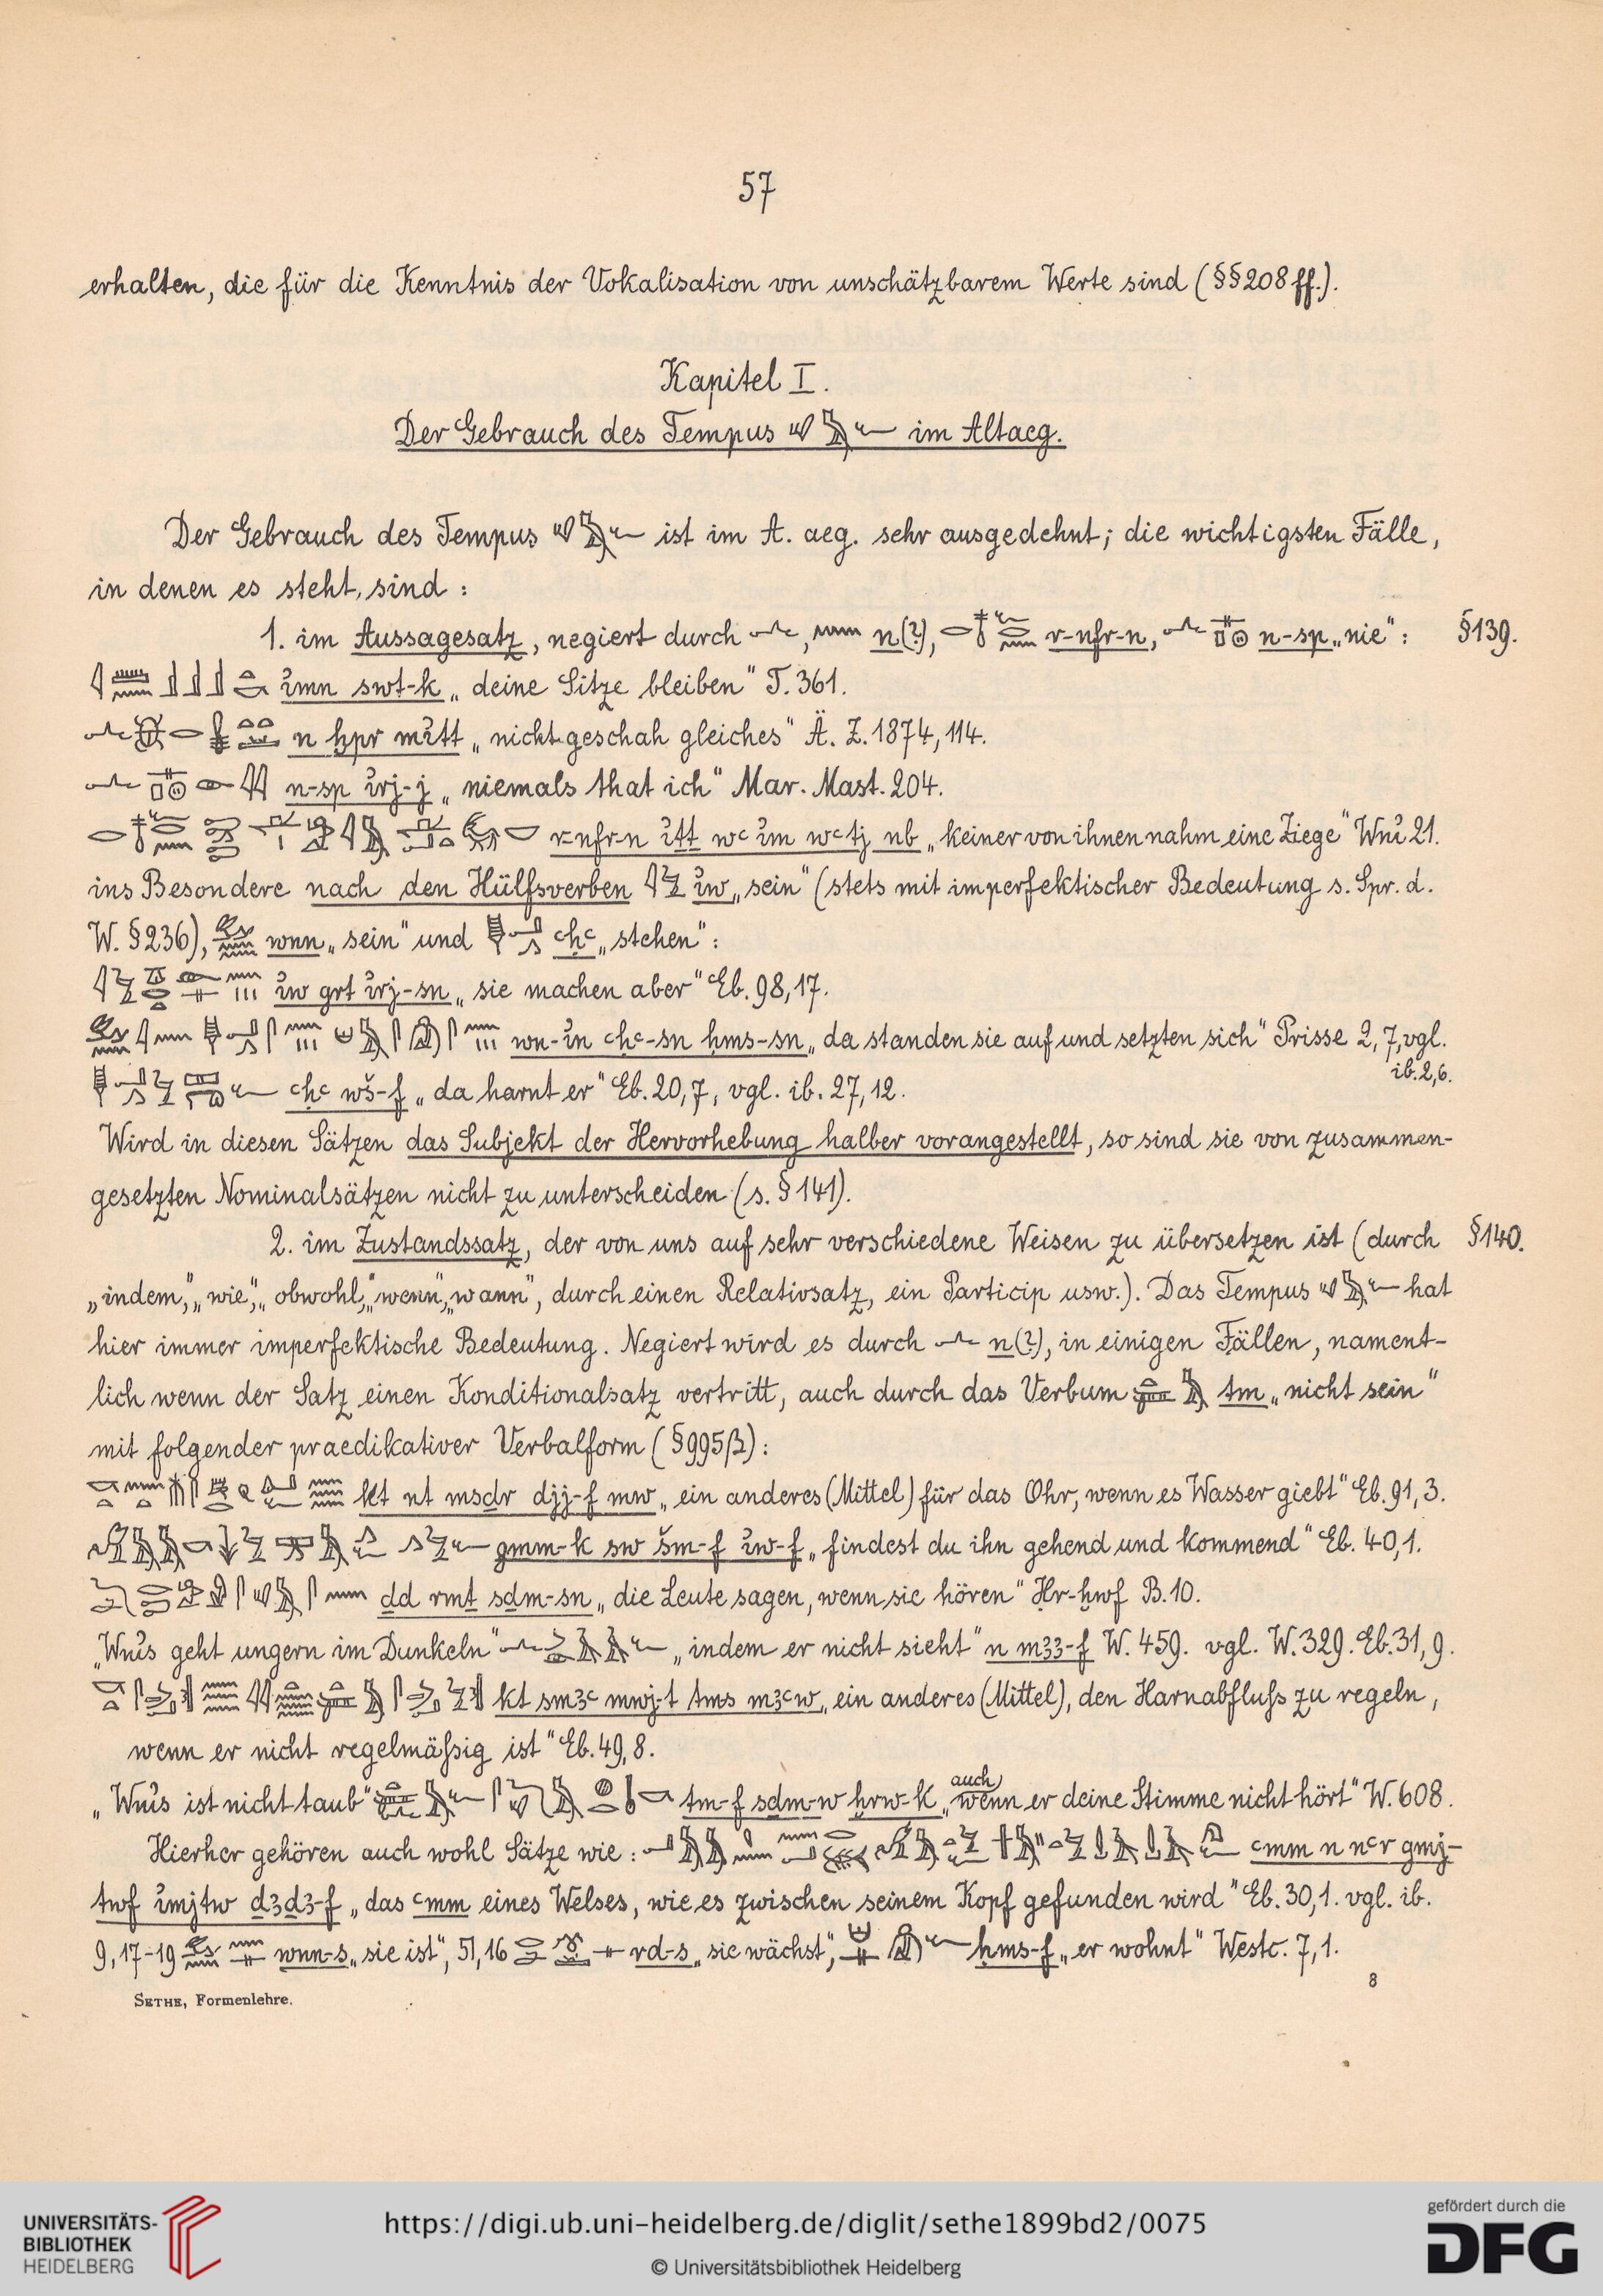 57
erhalten, die für die Kenntnis der Vokalisation von unschätzbarem Werte sind (§§208ff.).
Kapitel I.
Der Gebrauch des Tempus im Altaeg.
Der Gebrauch des Tempus ist im A. aeg. sehr ausgedehnt; die wichtigsten Fälle,
in denen es steht, sind:
1. im Aussagesatz, negiert durch , n(?), r-nfr-n, n-sp „nie“: §139.
ı͗mn swt-k „deine Sitze bleiben“ T. 361.
n ḫpr mı͗tt „nicht geschah gleiches“ Ä. Z. 1874, 114.
n-sp ı͗rj-j „niemals that ich“ Mar. Mast. 204.
r-nfr-n ı͗ṯt wꜥ ı͗m wꜥtj nb „keiner von ihnen nahm eine Ziege“ Wnı͗ 21.
ins Besondere nach den Hülfsverben ı͗w „sein“ (stets mit imperfektischer Bedeutung s. Spr. d.
W. §236), wnn „sein“ und ꜥḥꜥ „stehen“:
ı͗w grt ı͗rj-sn „sie machen aber“ Eb. 98,17.
wn-ı͗n ꜥḥꜥ-sn ḥms-sn „da standen sie auf und setzten sich“ Prisse 2,7, vgl.
ib. 2,6.
ꜥḥꜥ wš-f „da harnt er“ Eb. 20,7, vgl. ib. 27,12.
Wird in diesen Sätzen das Subjekt der Hervorhebung halber vorangestellt, so sind sie von zusammen-
gesetzten Nominalsätzen nicht zu unterscheiden (s. §141).
2. im Zustandssatz, der von uns auf sehr verschiedene Weisen zu übersetzen ist (durch §140.
„indem“, „wie“, „obwohl“, „wenn“, „wann“, durch einen Relativsatz, ein Particip usw.). Das Tempus hat
hier immer imperfektische Bedeutung. Negiert wird es durch n(?), in einigen Fällen, nament-
lich wenn der Satz einen Konditionalsatz vertritt, auch durch das Verbum tm „nicht sein“
mit folgender praedikativer Verbalform (§995β):
kt nt msḏr djj-f mw „ein anderes (Mittel) für das Ohr, wenn es Wasser giebt“ Eb. 91,3.
gmm-k sw šm-f ı͗w-f „findest du ihn gehend und kommend“ Eb. 40,1.
ḏd rmṯ sḏm-sn „die Leute sagen, wenn sie hören“ Ḥr-ḫwf B. 10.
„Wnı͗s geht ungern im Dunkeln“ „indem er nicht sieht“ n mꜣꜣ-f W. 459. vgl. W. 329. Eb. 31,9.
kt smꜣꜥ mwj-t tms mꜣꜥw „ein anderes (Mittel), den Harnabfluſs zu regeln,
wenn er nicht regelmäſsig ist“ Eb. 49,8.
„Wnı͗s ist nicht taub“ tm-f sḏm-w ḫrw-k „auch wenn er deine Stimme nicht hört“ W. 608.
Hierher gehören auch wohl Sätze wie: ꜥmm n nꜥr gmj-
twf ı͗mjtw ḏꜣḏꜣ-f „das ꜥmm eines Welses, wie es zwischen seinem Kopf gefunden wird“ Eb. 30,1. vgl. ib.
9,17-19 wnn-s „sie ist“, 51,16 rd-s „sie wächst“, ḥms-f „er wohnt“ Westc. 7,1.
8
SETHE, Formenlehre.
UNIVERSITÄTS-
BIBLIOTHEK
HEIDELBERG
https://digi.ub.uni-heidelberg.de/diglit/sethe1899bd2/0075
© Universitätsbibliothek Heidelberg
gefördert durch die
DFG